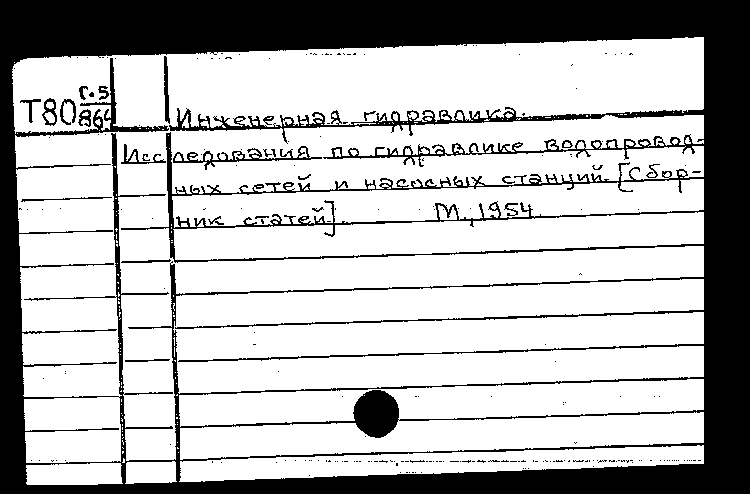 Г.5
Т80 864
Инженерная гидравлика.
Исследования по гидравлике водопровод-
ных сетей и насосных станций. [Сбор-
ник статей]. М., 1954